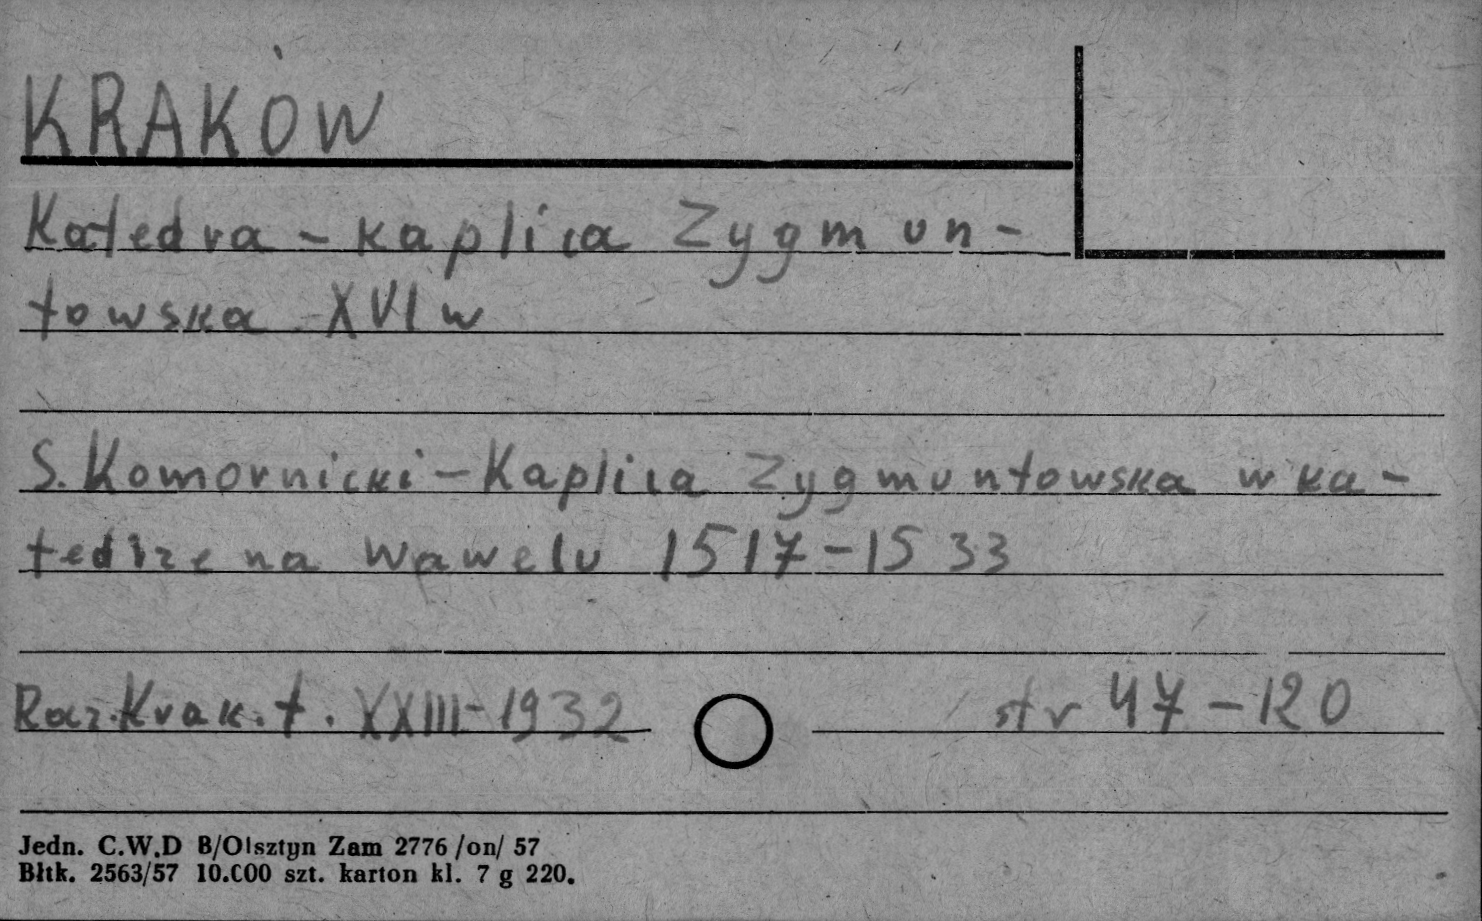 KRAKÓW
Katedra - kaplica Zygmun-
towska XVI w
S. Komornicki - Kaplica Zygmuntowska w ka-
tedrze na Wawelu 1517-1533
Rocz. Krak. t. XXIII - 1932 str 47-120
Jedn. C.W.D B/Olsztyn Zam 2776 /on/ 57
Błtk. 2563/57 10.000 szt. karton kl. 7 g 220.